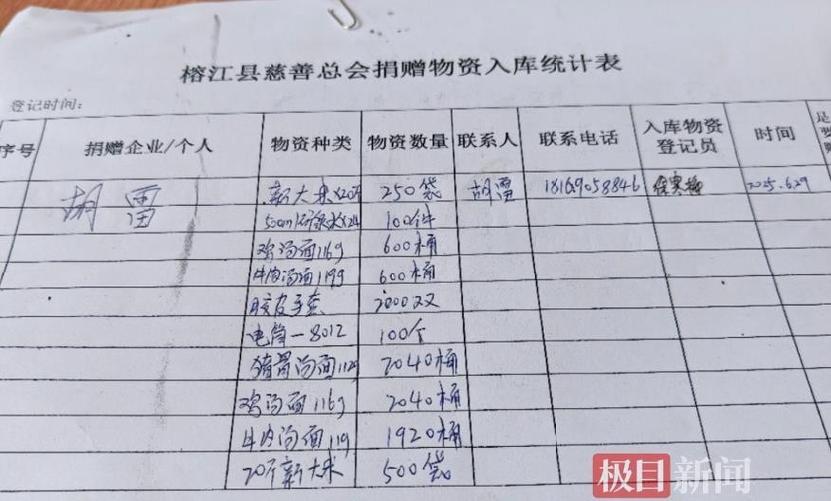 榕江县慈善总会捐赠物资入库统计表
登记时间:
序号 捐赠企业/个人 物资种类 物资数量 联系人 联系电话 入库物资登记员 时间 是
胡雷 新大米x20斤 250袋 胡雷 18169058846 2025.6.29
500ml x24 100件
鸡汤面116g 600桶
牛肉汤面119g 600桶
胶皮手套 2000双
电筒—8012 100个
猪骨汤面112g 2040桶
鸡汤面116g 2040桶
牛肉汤面119 1920桶
20斤新大米 500袋
极目新闻